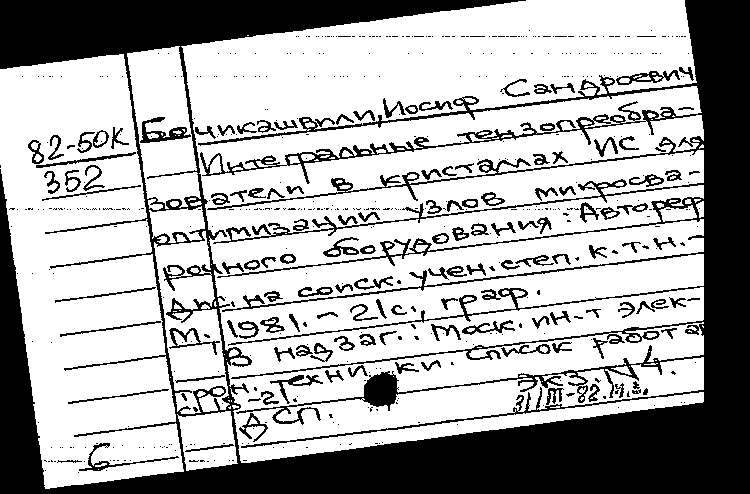 82-50К
352
Бочикашвили, Иосиф Сандроевич
Интегральные тензопреобра-
зователи в кристаллах ИС для
оптимизации узлов микросва-
рочного оборудования: Автореф
дис. на соиск. учен. степ. к.т.н. -
М., 1981. - 21 с., граф.
В надзаг.: Моск. ин-т элек-
трон. техники. Список работ а
с. 18-21.
Экз. N4.
ДСП.
31/III-82.
6